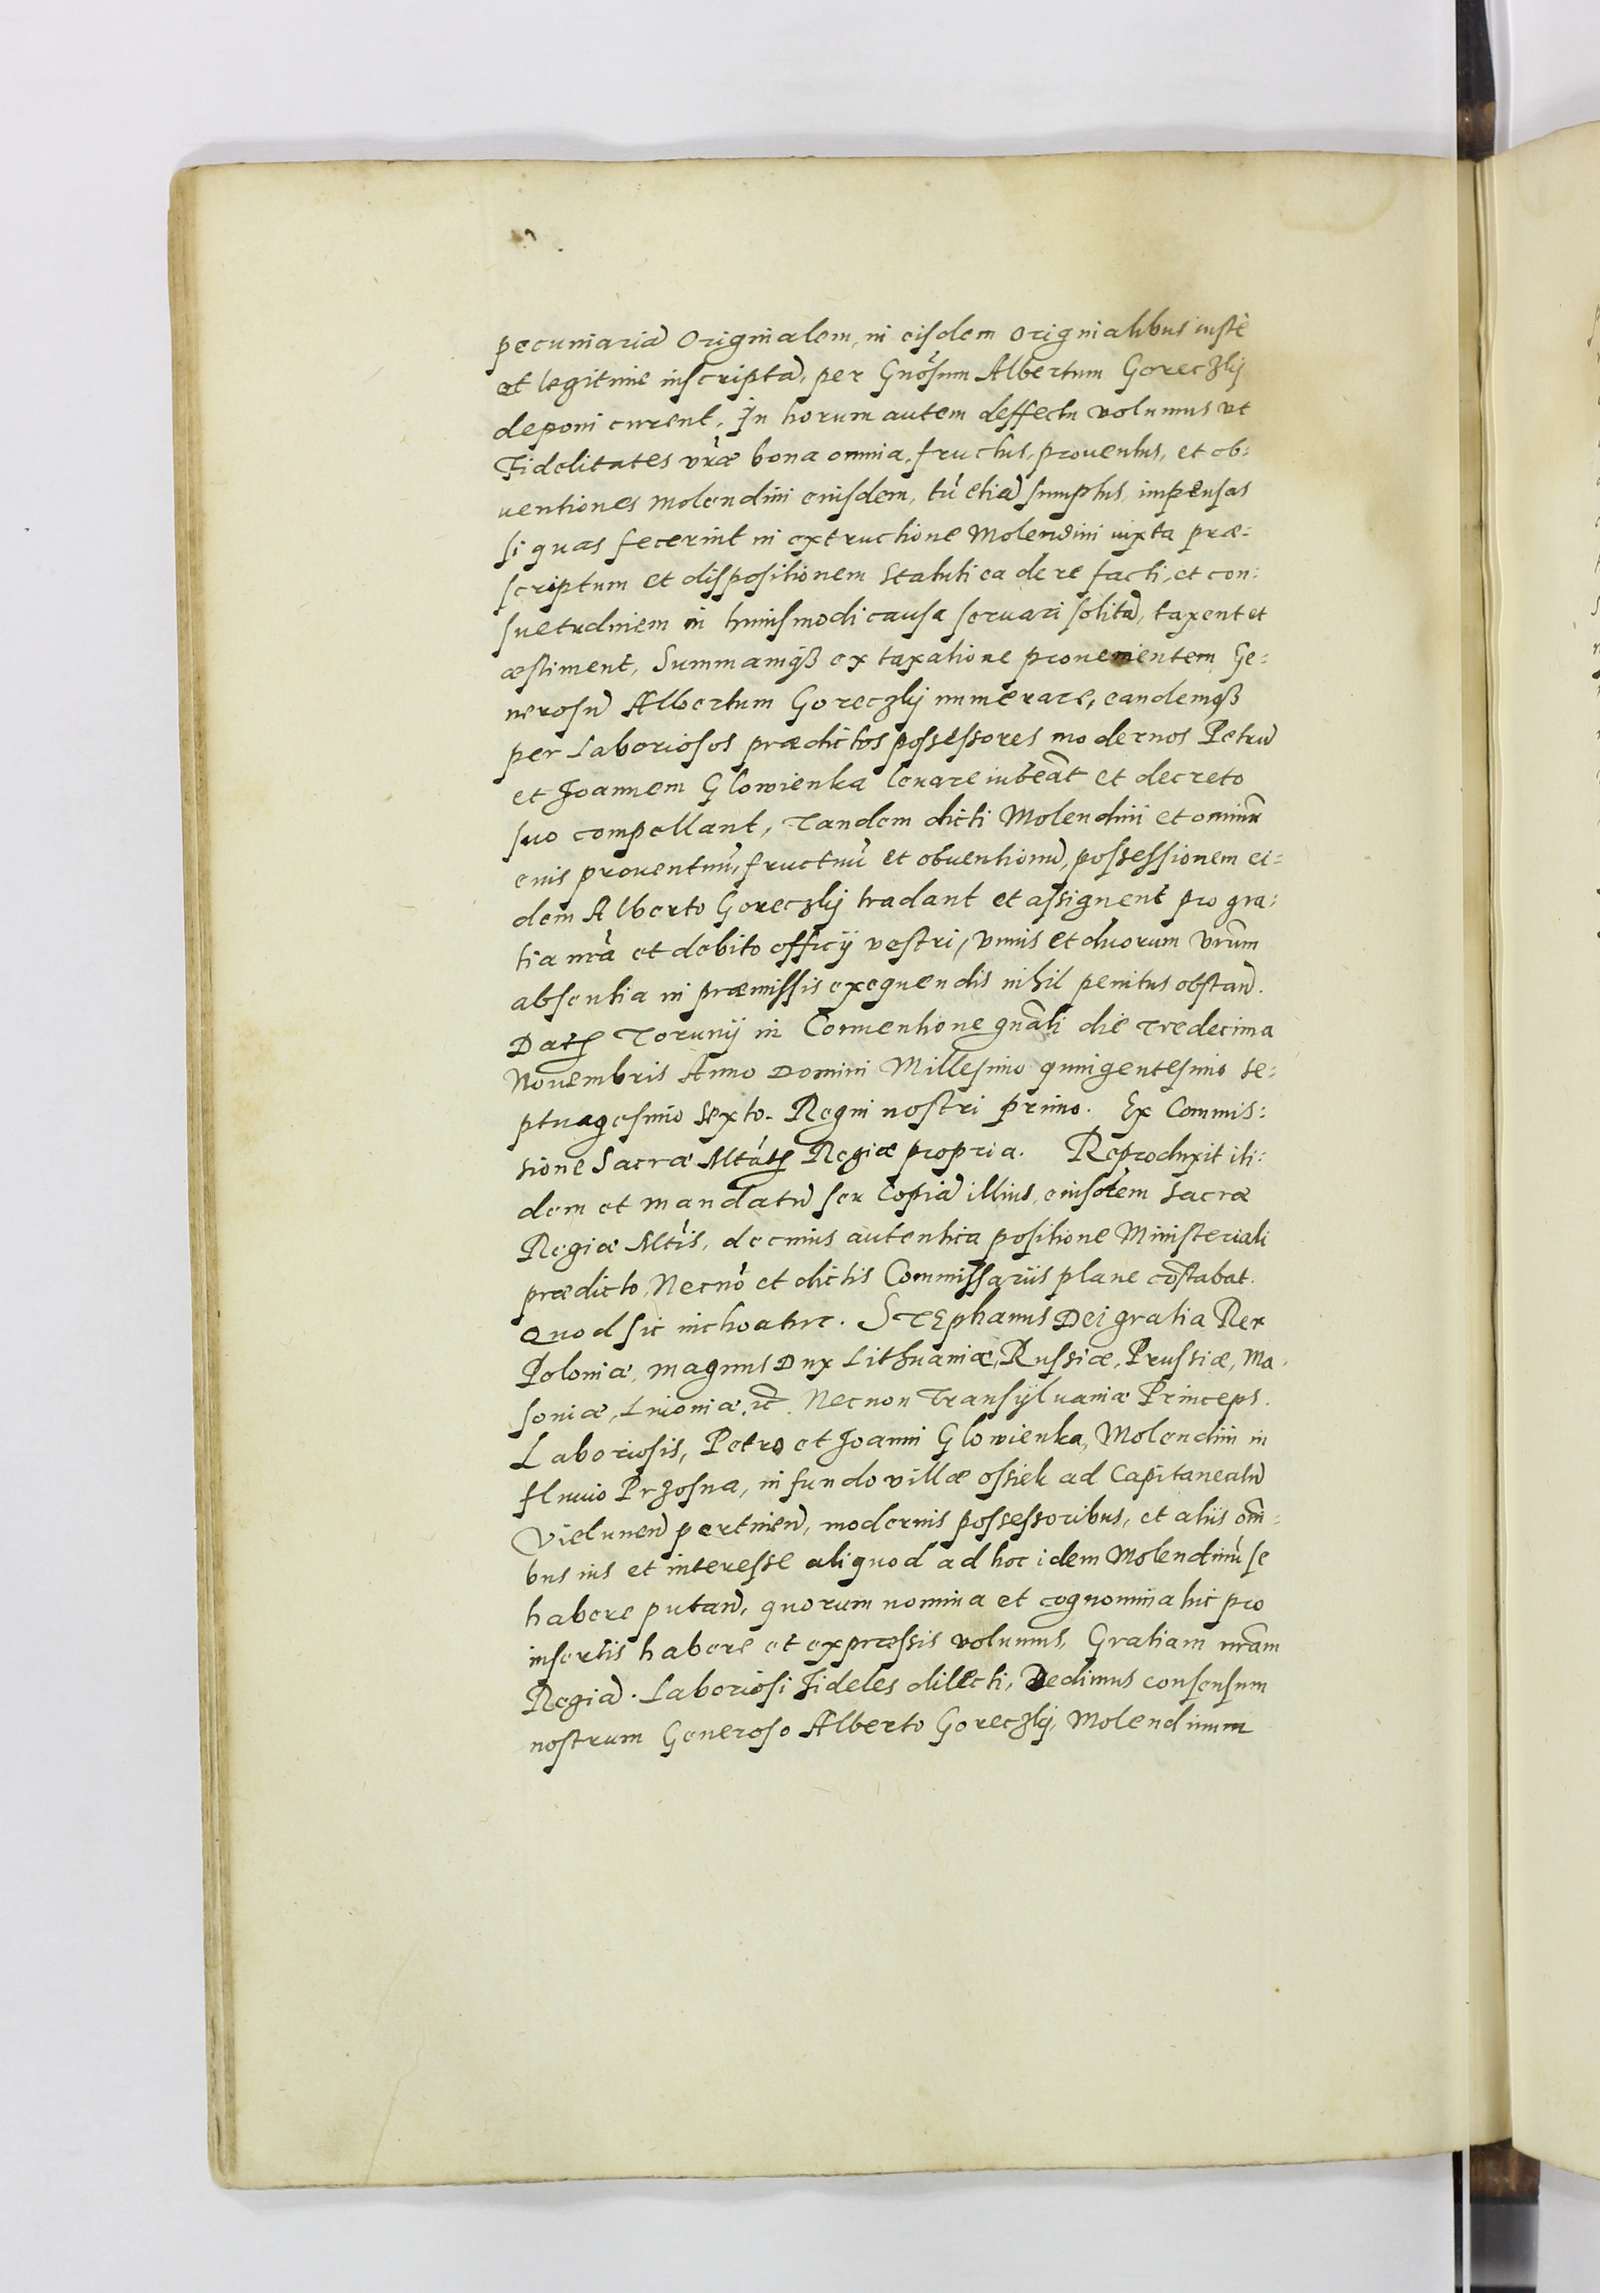 pecuniariã Originalem, in eisdem Originalibus iustè
et legitime inscriptã, per Gnõsum Albertum Goreczky
deponi curent, In horum autem deffectu volumus vt
Fidelitates vr̃æ bona omnia, fructus, prouentus, et ob:
uentiones Molendini eiusdem, tũ etiã sumptus, impensas
si quas fecerint in extructione Molendini iuxta præ:
scriptum et dispositionem Statuti ea de re facti, et con:
suetudinem in huiusmodi causa seruari solitã, taxent et
æstiment, Summamqȝ ex taxatione prouenientem Ge:
nerosũ Albertum Goreczky numerare, eandemqȝ
per Laboriosos prædictos possessores modernos Petrũ
et Joannem Glowienka leuare iubeãt et decreto
suo compellant, Tandem dicti Molendini et omniũ
eius prouentuũ, fructuũ et obuentionũ, possessionem ei:
dem Alberto Goreczky tradant et assignent pro gra:
tia nr̃a et debito officij vestri, vnius et duorum vr̃um
absentia in præmissis exequendis nihil penitus obstañ.
Datꝭ Torunij in Conuentione gnãli die Tredecima
Nouembris Anno Domini Millesimo quingentesimo se:
ptuagesimo sexto. Regni nostri primo. Ex Commis:
sione Sacræ Mtãtꝭ Regiæ propria. Reproduxit iti:
dem et mandatũ seu Copiã illius, eiusdem Sacræ
Regiæ Mtĩs, de cuius autentica positione Ministeriali
prædicto, Necnõ et dictis Commissarijs plane cõstabat.
Quod sic inchoatur. STEphanus Dei gratia Rex
Poloniæ, magnus Dux Lithuaniæ, Russiæ, Prussiæ, Ma
souiæ, Liuoniæ, ꝛc̃. Necnon Transyluaniæ Princeps.
Laboriosis, Petro et Joanni Glowienka, Molendini in
fluuio Przosna, in fundo villæ ossiek ad Capitaneatũ
Vielunen̄ pertinen̄, modernis possessoribus, et aliis om̃:
bus ius et interesse aliquod ad hoc idem Molendinũ se
habere putan̄, quorum nomina et cognomina hic pro
insertis habere et expressis volumus, Gratiam nr̃am
Regiã. Laboriosi Fideles dilecti, Dedimus consensum
nostrum Generoso Alberto Goreczky, Molendinum